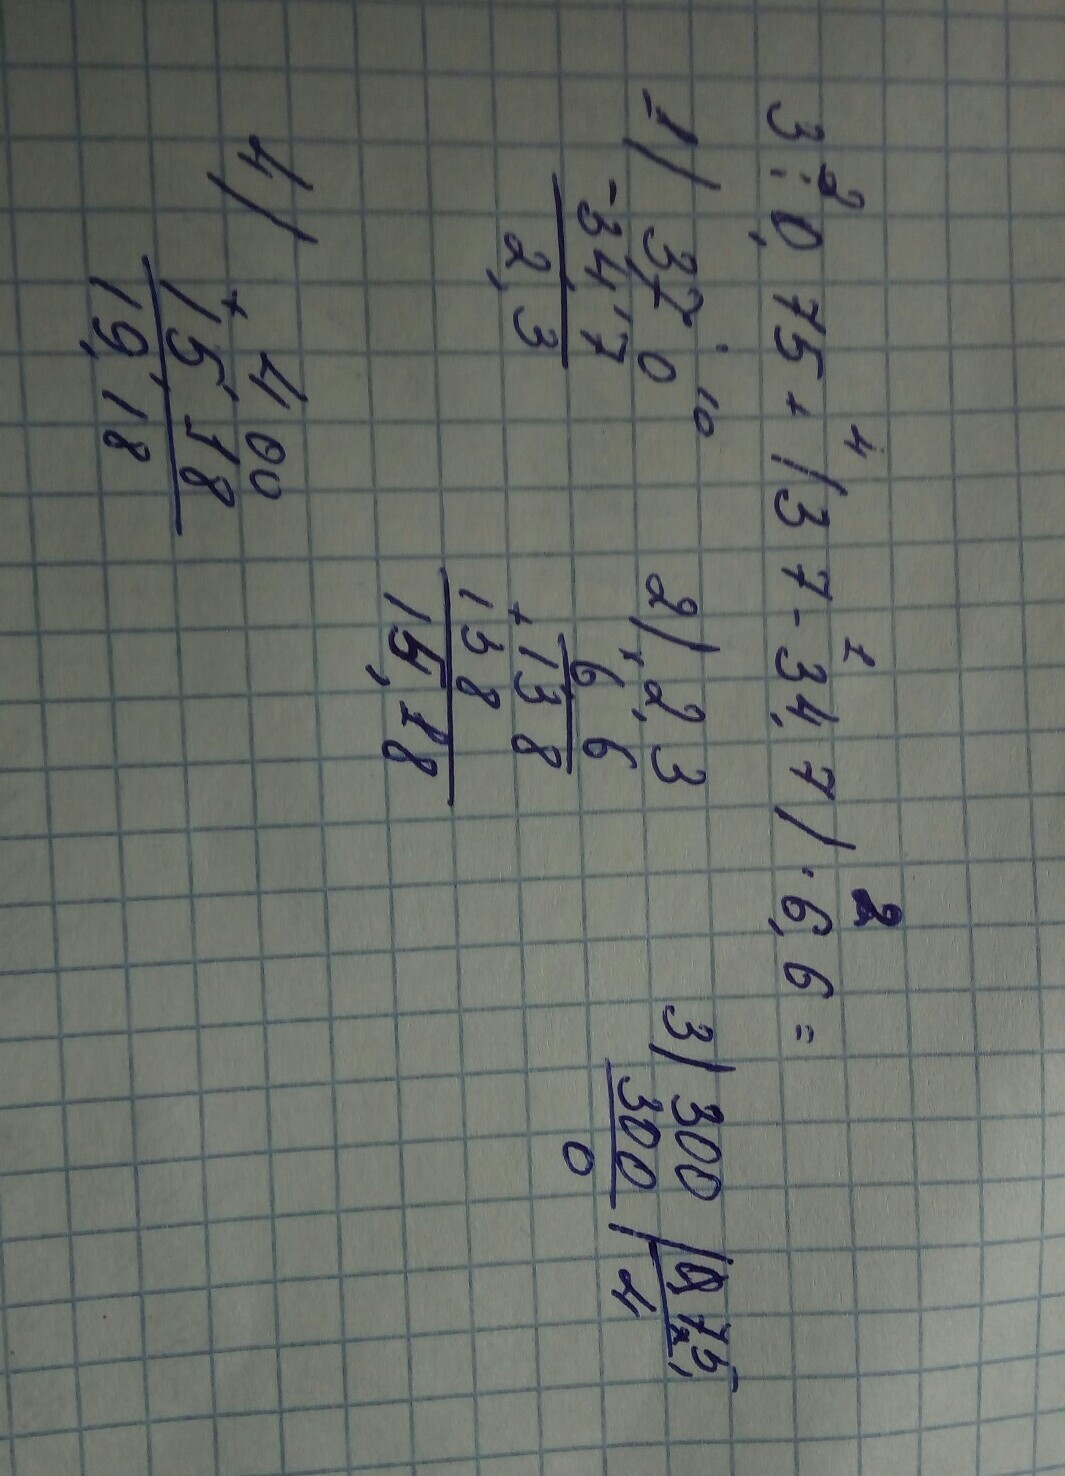 3 : 0,75 + (37 - 34,7) · 6,6 =
2 4 1 2
1) 37 0
- 34,7
2,3
10
2) × 2,3
6 6
+ 13 8
13 8
15,18
3) 300 | 0,75
300 | 4
0
4) 4 00
+ 15,18
19,18